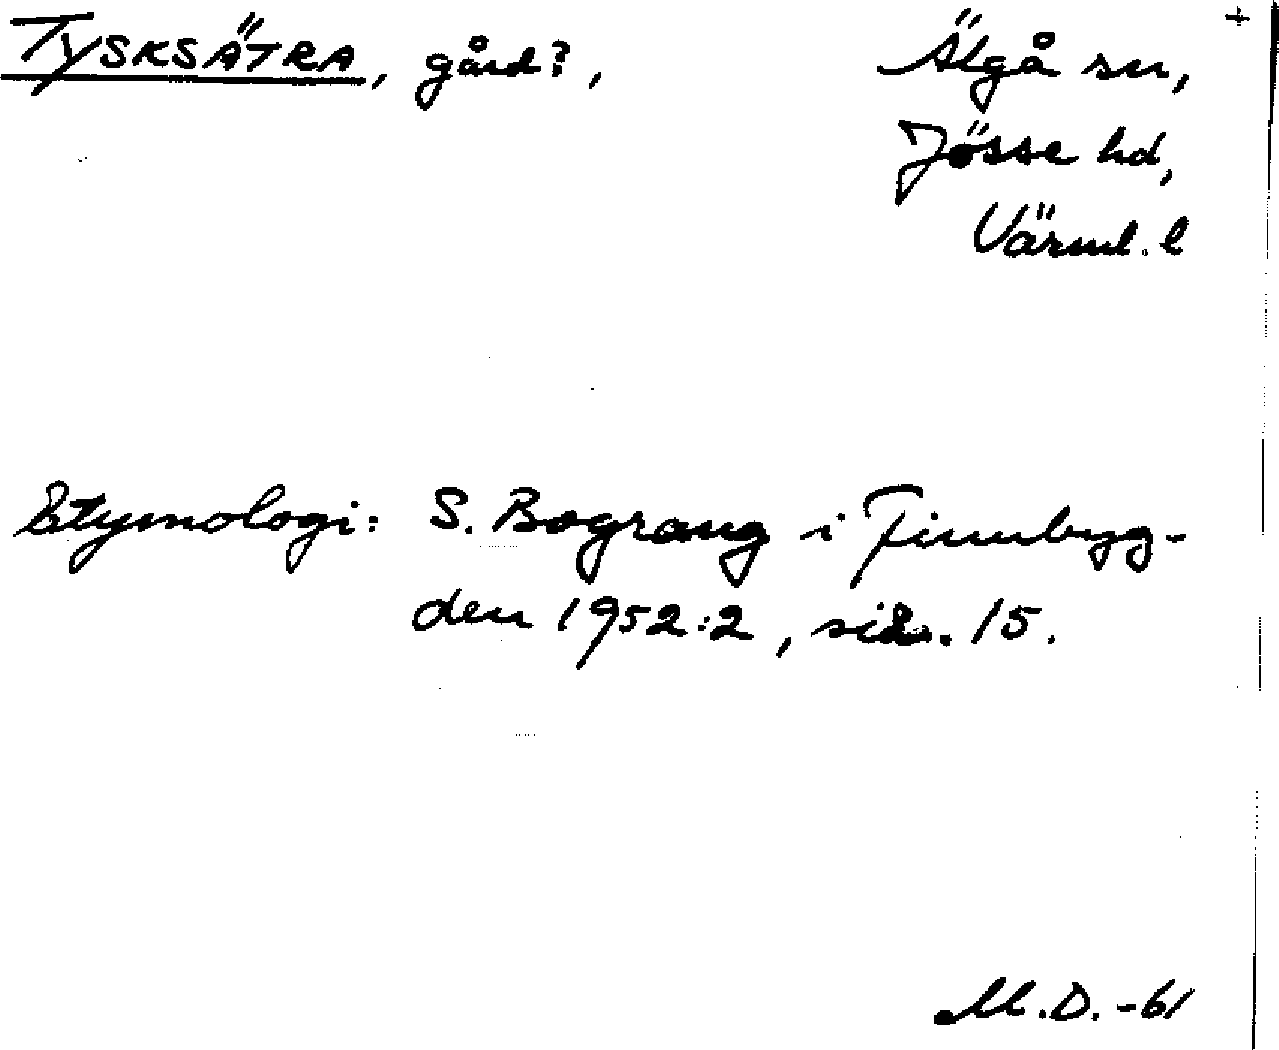 TYSKSÄTRA, gård?, Älgå sn, +
Jösse hd,
Värml. l
Etymologi: S. Bograng i Finnbyg-
den 1952:2, sid. 15.
M.D. -61